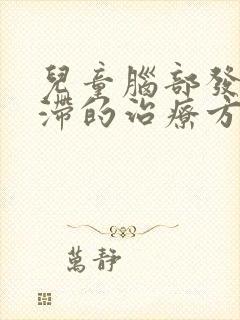 兒童腦部發
滯的治療方
萬靜